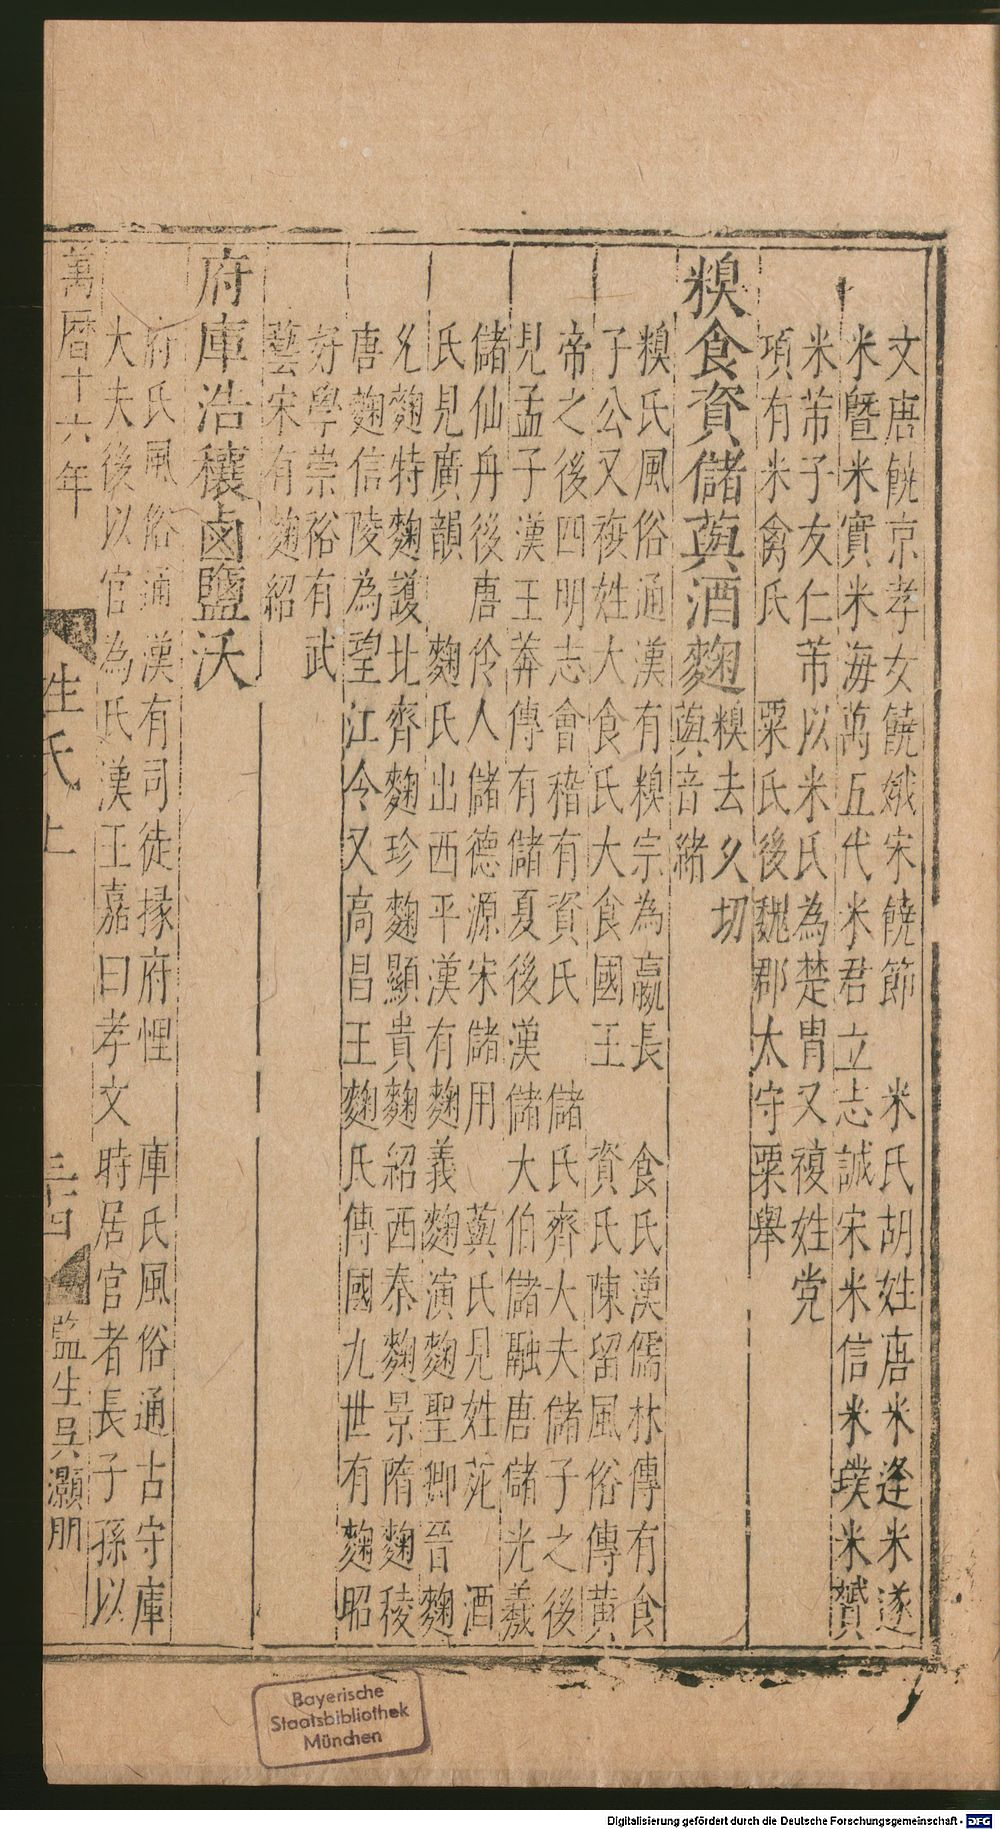 文唐饒京孝女饒娥宋饒節　米氏胡姓唐米逢米遂
米曁米實米海萬五代米君立志誠宋米信米璞米贇
米芾子友仁芾以米氏為楚冑又複姓党
項有米禽氏　粟氏後魏郡太守粟舉
糗食資儲蒖酒麴
糗去久切
蒖音緒
糗氏風俗通漢有糗宗為嬴長　食氏漢儒林傳有食
子公又複姓大食氏大食國王　資氏陳留風俗傳黃
帝之後四明志會稽有資氏　儲氏齊大夫儲子之後
見孟子漢王莽傳有儲夏後漢儲大伯儲融唐儲光羲
儲仙舟後唐伶人儲德源宋儲用　蒖氏見姓苑　酒
氏見廣韻　麴氏出西平漢有麴義麴演麴聖卿晉麴
允麴特麴護北齊麴珍麴顯貴麴紹西秦麴景隋麴稜
唐麴信陵為望江令又高昌王麴氏傳國九世有麴昭
好學崇裕有武
藝宋有麴紹
府庫浩穰鹵鹽沃
府氏風俗通漢有司徒掾府悝　庫氏風俗通古守庫
大夫後以官為氏漢王嘉曰孝文時居官者長子孫以
萬曆十六年
姓氏上
三十四
監生吳灝朋
Bayerische
Staatsbibliothek
München
Digitalisierung gefördert durch die Deutsche Forschungsgemeinschaft - DFG